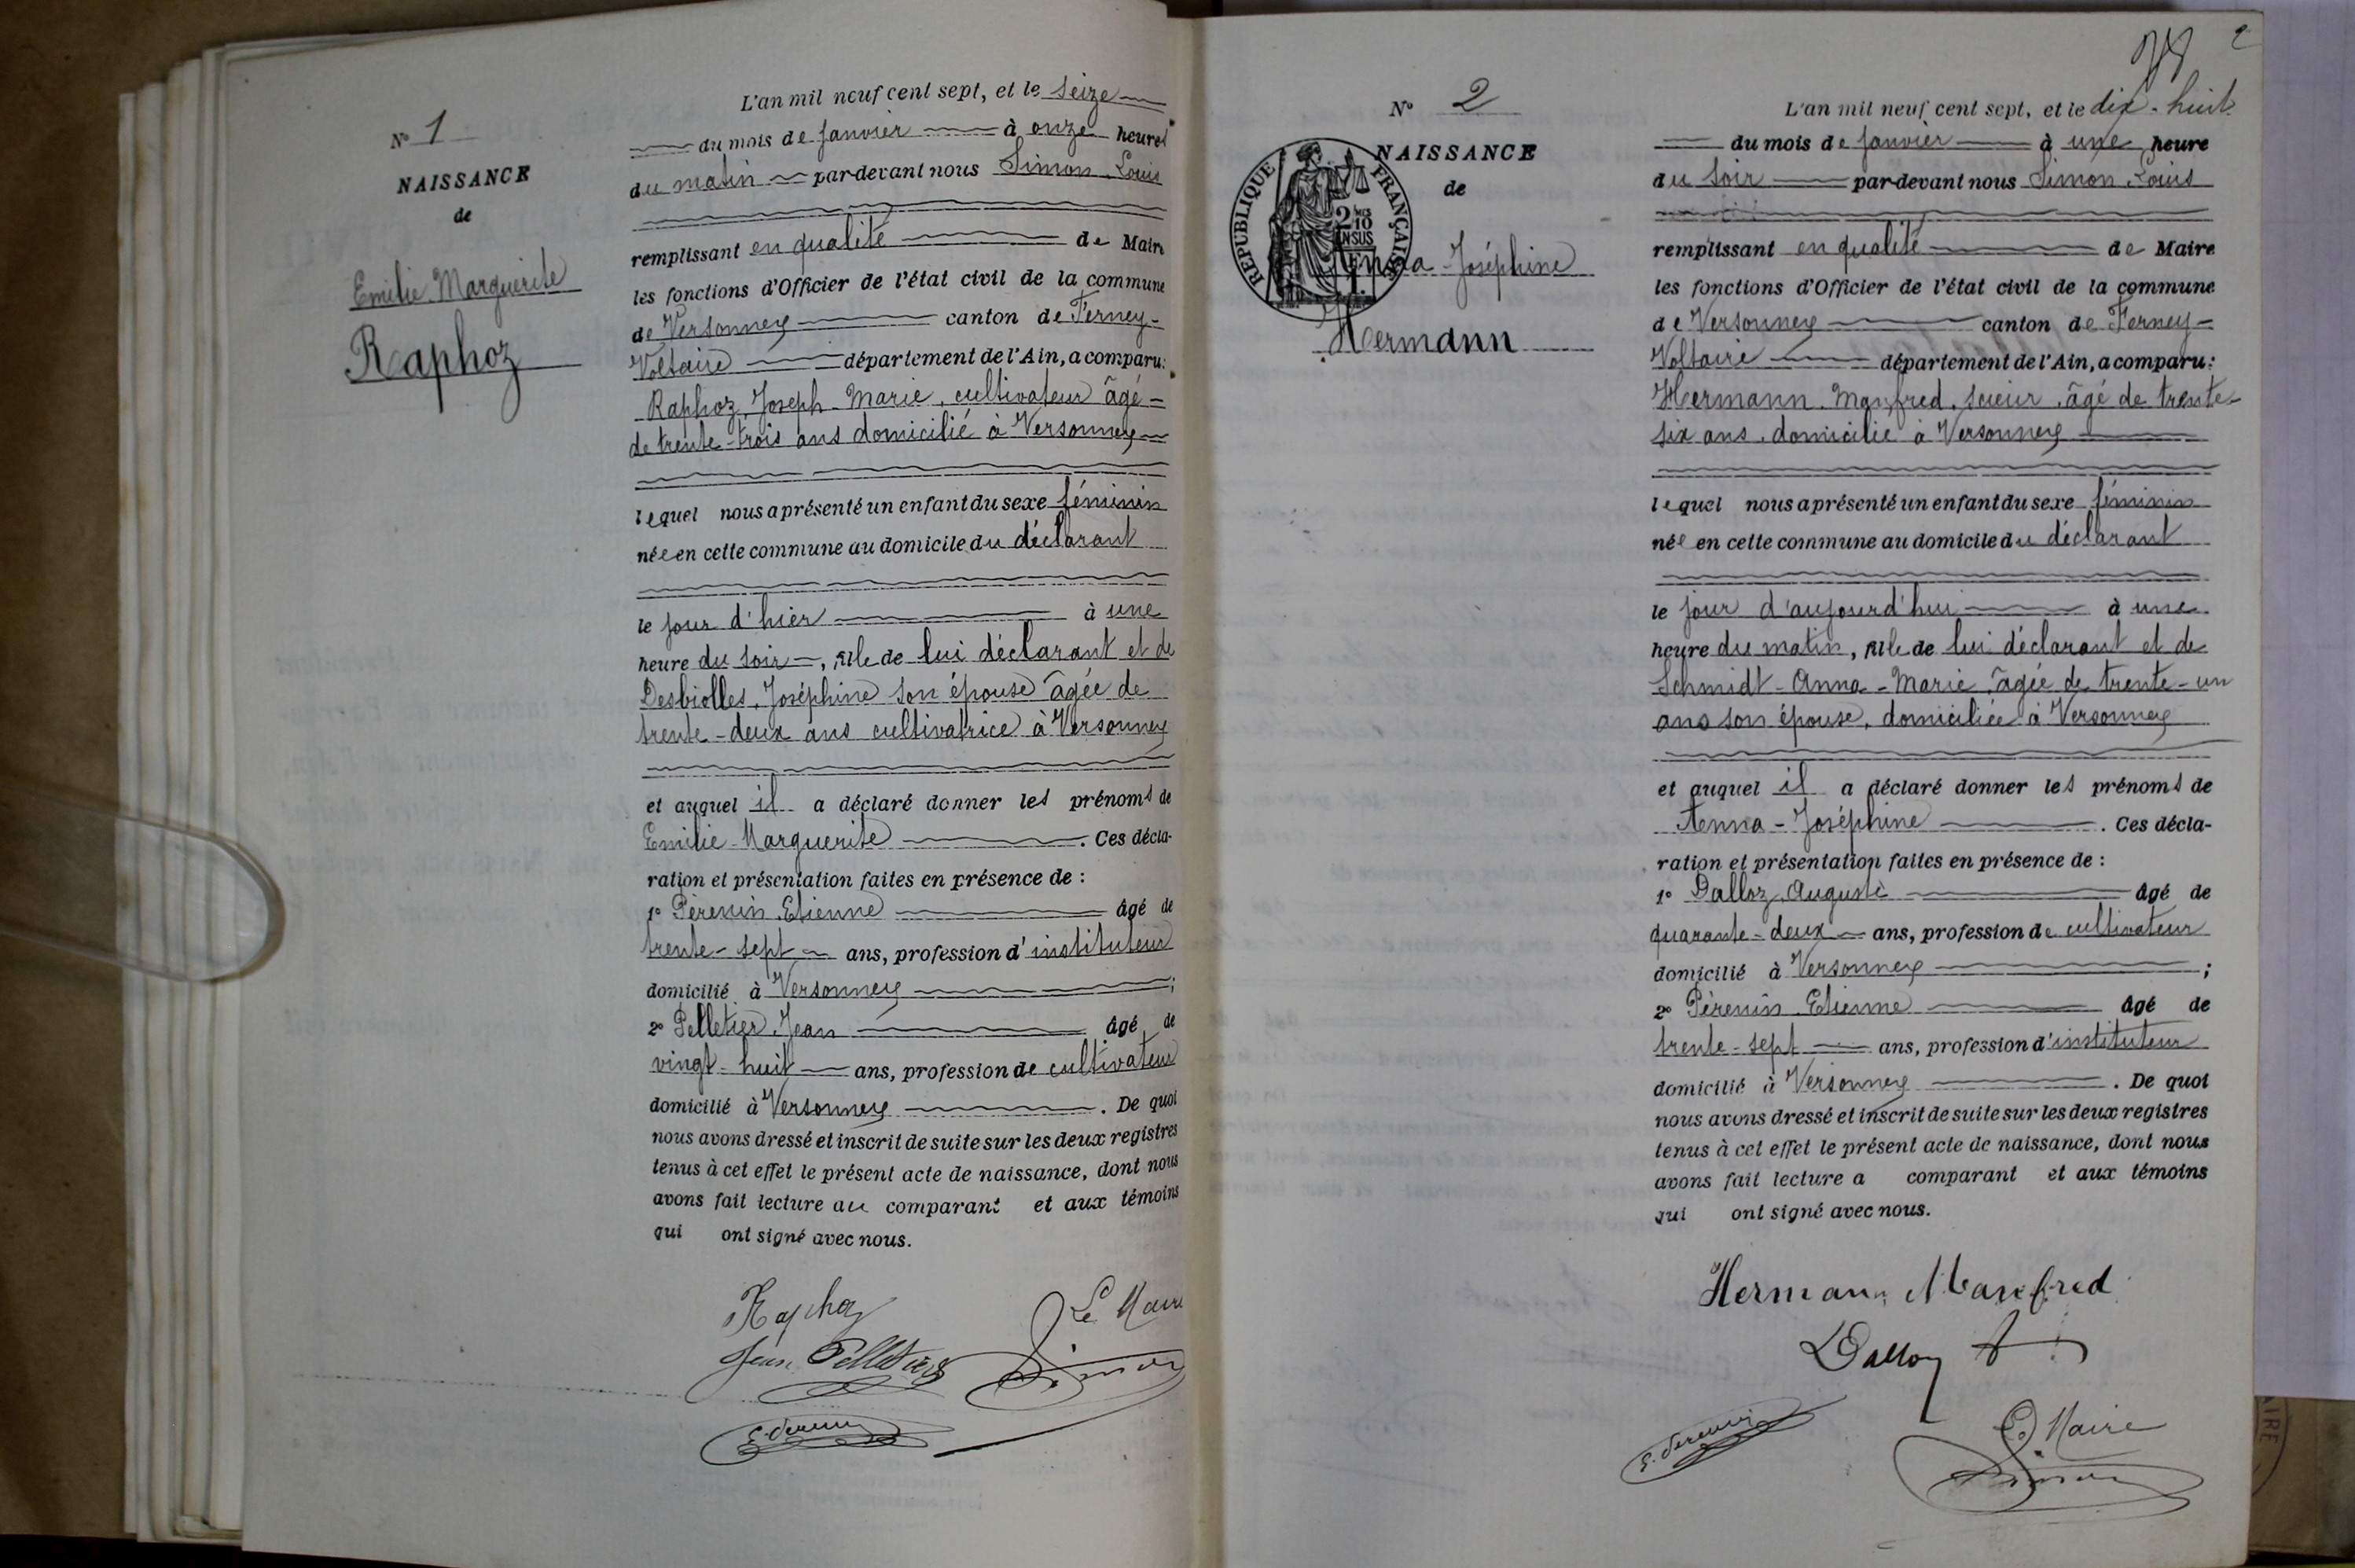 N° 1
NAISSANCE
de
Emilie Marguerite
Raphoz
L'an mil neuf cent sept, et le seize
du mois de janvier à onze heures
du matin par-devant nous Simon Louis
remplissant en qualité de Maire
les fonctions d'Officier de l'état civil de la commune
de Versonnex canton de Ferney-
Voltaire département de l'Ain, a comparu:
Raphoz, Joseph-Marie, cultivateur âgé
de trente-trois ans domicilié à Versonnex
lequel nous a présenté un enfant du sexe féminin
née en cette commune au domicile du déclarant
le jour d'hier à une
heure du soir, fille de lui déclarant et de
Desbiolles, Joséphine son épouse âgée de
trente-deux ans cultivatrice à Versonnex
et auquel il a déclaré donner les prénoms de
Emilie-Marguerite. Ces décla-
ration et présentation faites en présence de :
1° Pérenin Etienne âgé de
trente-sept ans, profession d'instituteur
domicilié à Versonnex ;
2° Pelletier Jean âgé de
vingt-huit ans, profession de cultivateur
domicilié à Versonnex. De quoi
nous avons dressé et inscrit de suite sur les deux registres
tenus à cet effet le présent acte de naissance, dont nous
avons fait lecture au comparant et aux témoins
qui ont signé avec nous.
Raphoz
Le Maire
Jean Pelletier
Simon
E. Perenin
2
N° 2
NAISSANCE
de
RÉPUBLIQUE FRANÇAISE
2 Mes 10 EN SUS
Anna-Joséphine
Hermann
L'an mil neuf cent sept, et le dix-huit
du mois de janvier à une heure
du soir par-devant nous Simon Louis
remplissant en qualité de Maire
les fonctions d'Officier de l'état civil de la commune
de Versonnex canton de Ferney-
Voltaire département de l'Ain, a comparu:
Hermann, Manfred, scieur, âgé de trente-
six ans, domicilié à Versonnex
lequel nous a présenté un enfant du sexe féminin
née en cette commune au domicile du déclarant
le jour d'aujourd'hui à une
heure du matin, fille de lui déclarant et de
Schmidt-Anna-Marie, âgée de trente-un
ans son épouse, domiciliée à Versonnex
et auquel il a déclaré donner les prénoms de
Anna-Joséphine. Ces décla-
ration et présentation faites en présence de :
1° Dalloz, Auguste âgé de
quarante-deux ans, profession de cultivateur
domicilié à Versonnex ;
2° Pérenin Etienne âgé de
trente-sept ans, profession d'instituteur
domicilié à Versonnex. De quoi
nous avons dressé et inscrit de suite sur les deux registres
tenus à cet effet le présent acte de naissance, dont nous
avons fait lecture a comparant et aux témoins
qui ont signé avec nous.
Hermann Manfred
Dalloz A
E. Perenin
Le Maire
Simon